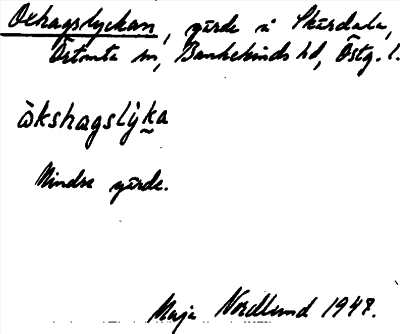 Oxhagslyckan, gärde i Skärdala,
Örtomta sn, Bankekinds hd, Östg. l.
ὼkshagslyka
Mindre gärde.
Maja Nordlund 1947.